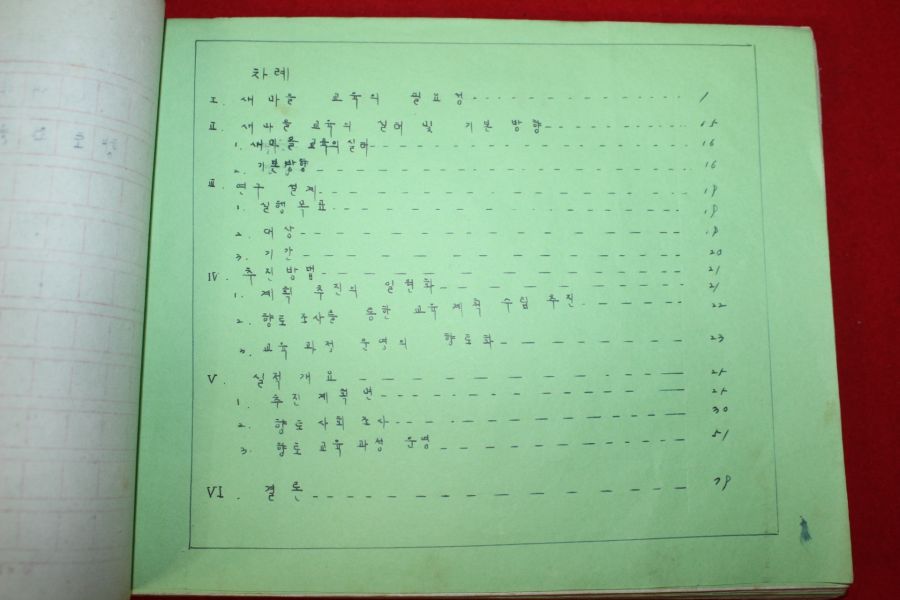 차례
I. 새마을 교육의 필요성 1
II. 새마을 교육의 실태 및 기본 방향 15
1. 새마을 교육의 실태 16
2. 기본방향 16
III. 연구 설계 18
1. 실행 목표 18
2. 대상 18
3. 기간 20
IV. 추진방법 21
1. 계획 추진의 일원화 21
2. 향토 조사를 통한 교육 계획 수립 추진 22
3. 교육 과정 운영의 향토화 23
V. 실적 개요
1. 추진 계획면
2. 향토 사회 조사 30
3. 향토 교육 과정 운영 51
VI. 결론 79